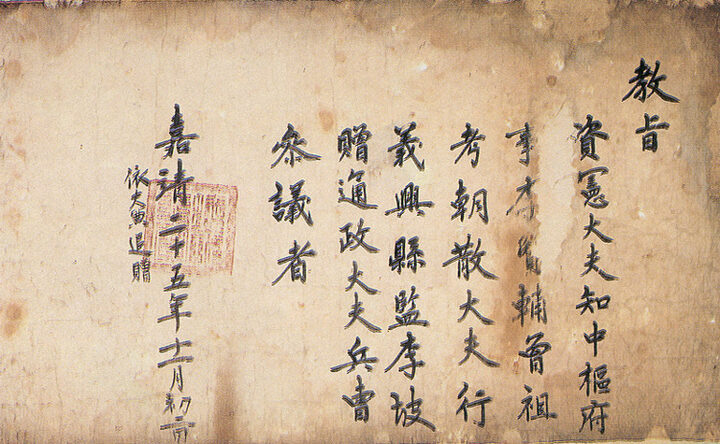 教旨
資憲大夫知中樞府
事李賢輔曾祖
考朝散大夫行
義興縣監李坡
贈通政大夫兵曹
叅議者
嘉靖二十五年十一月初
依大典追贈